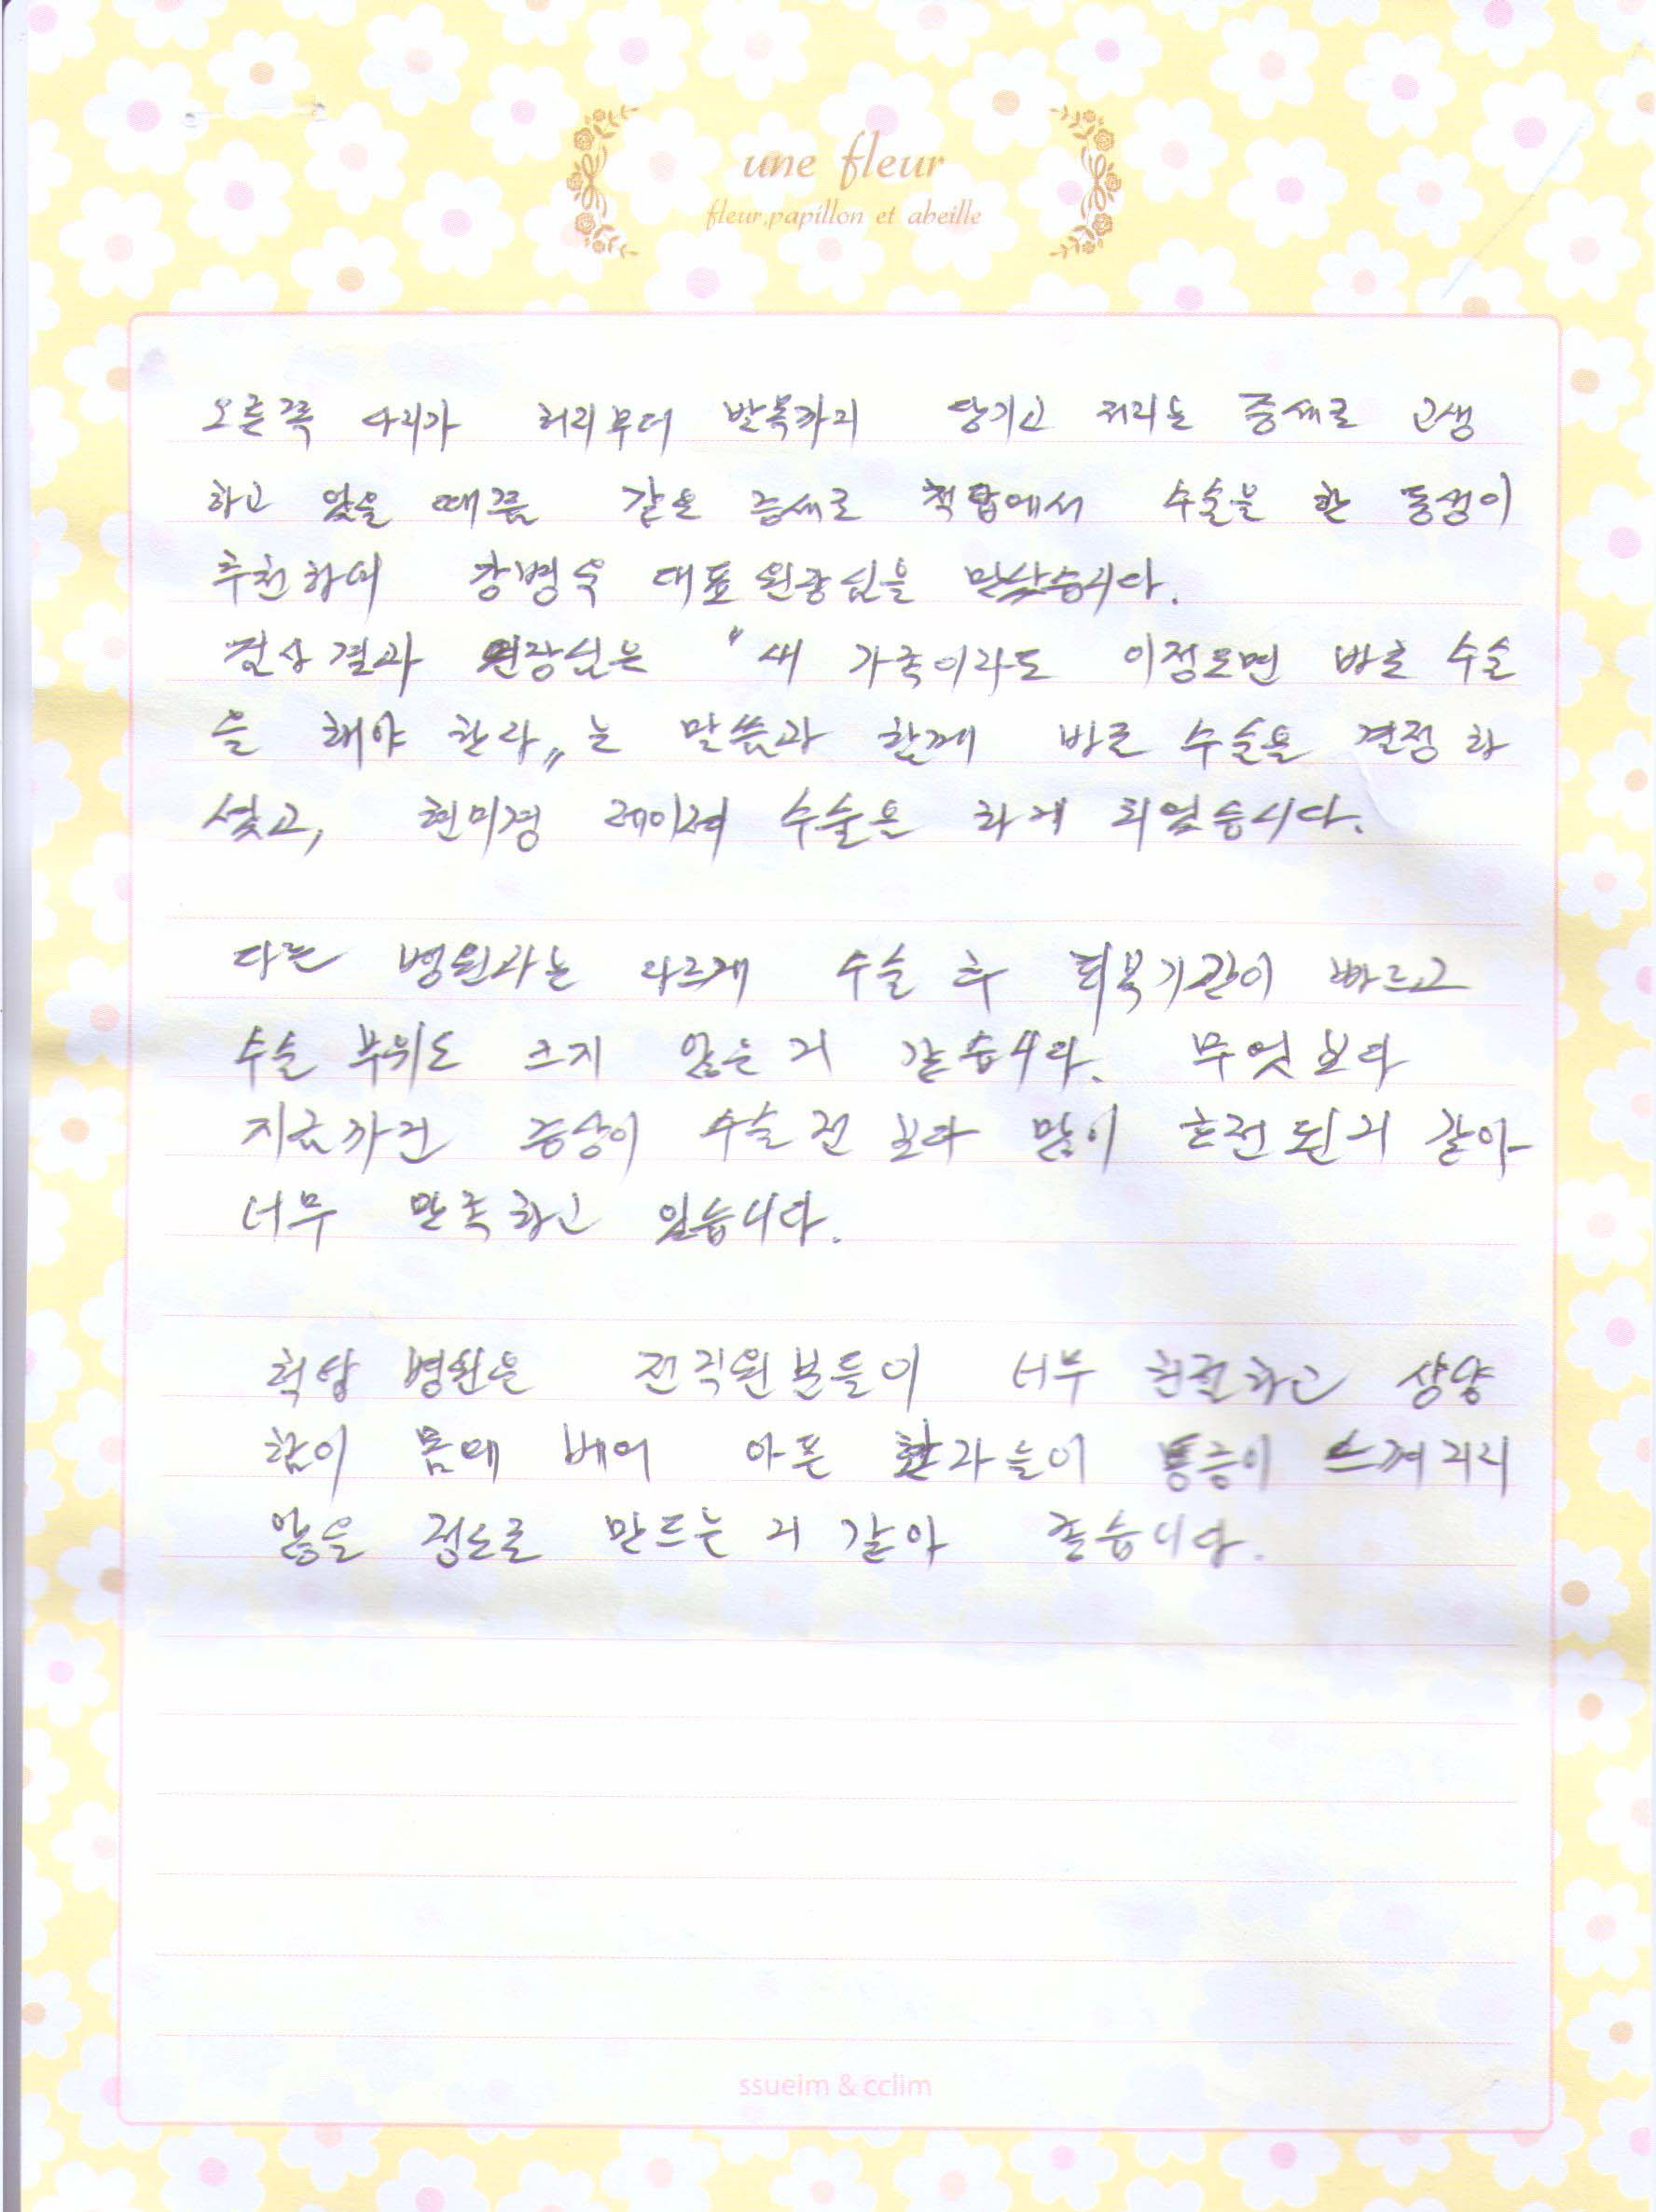 une fleur
fleur, papillon et abeille
오른쪽 다리가 허리부터 발목까지 당기고 저리는 증세로 고생
하고 있을 때쯤 같은 증세로 척탑에서 수술을 한 동생이
추천하여 강병욱 대표원장님을 만났습니다.
진상결과 원장님은 "내 가족이라도 이정도면 바로 수술
을 해야 한다"는 말씀과 함께 바로 수술을 결정하
셨고, 현미경 레이저 수술을 하게 되었습니다.
다른 병원과는 다르게 수술 후 회복기간이 빠르고
수술 부위도 크지 않은 거 같습니다. 무엇보다
지금까진 증상이 수술 전 보다 많이 호전된거 같아
너무 만족하고 있습니다.
척탑 병원은 전직원분들이 너무 친절하고 상냥
함이 몸에 베어 아픈 환자들이 통증이 느껴지지
않을 정도로 만드는 거 같아 좋습니다.
ssueim & cclim